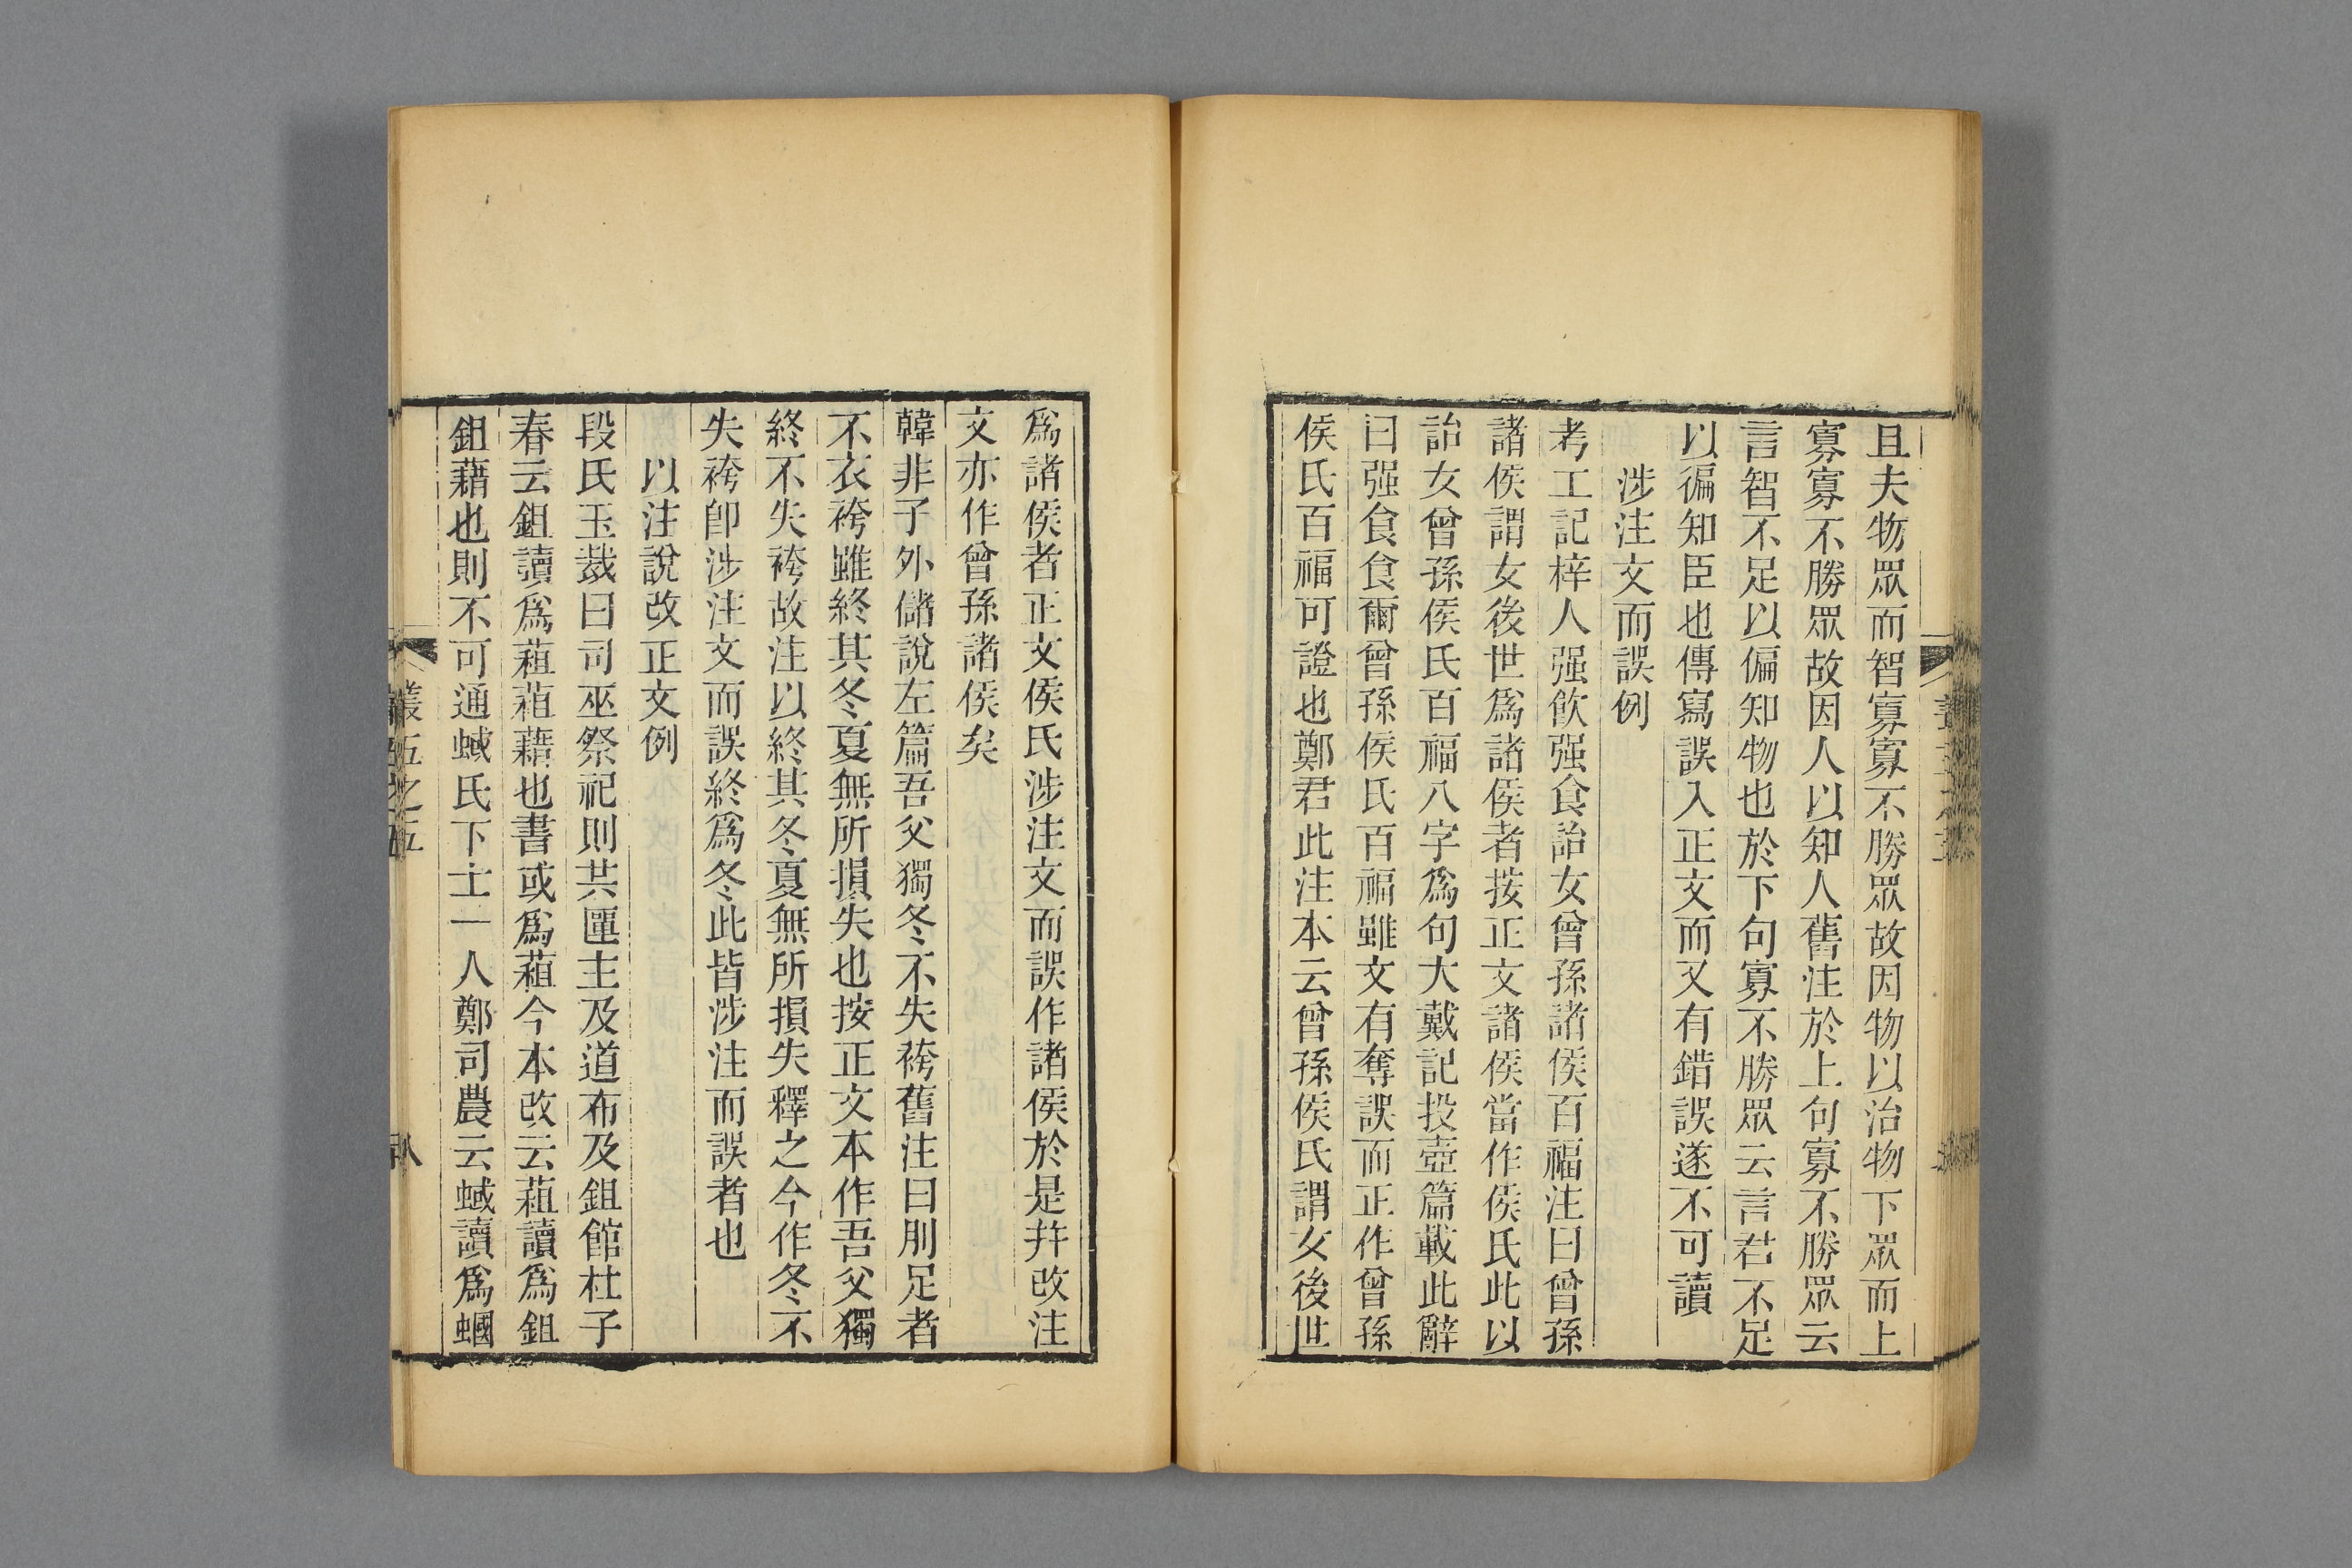 且夫物眾而智寡寡不勝眾故因物以治物下眾而上
寡寡不勝眾故因人以知人舊注於上句寡不勝眾云
言智不足以偏知物也於下句寡不勝眾云言君不足
以徧知臣也傳寫誤入正文而又有錯誤遂不可讀
涉注文而誤例
考工記梓人强飲强食詒女曾孫諸侯百福注曰曾孫
諸侯謂女後世爲諸侯者按正文諸侯當作侯氏此以
詒女曾孫侯氏百福八字爲句大戴記投壺篇載此辭
曰强食食爾曾孫侯氏百福雖文有奪誤而正作曾孫
侯氏百福可證也鄭君此注本云曾孫侯氏謂女後世
爲諸侯者正文侯氏涉注文而誤作諸侯於是幷改注
文亦作曾孫諸侯矣
韓非子外儲說左篇吾父獨冬不失袴舊注曰刖足者
不衣袴雖終其冬夏無所損失也按正文本作吾父獨
終不失袴故注以終其冬夏無所損失釋之今作冬不
失袴卽涉注文而誤終爲冬此皆涉注而誤者也
以注說改正文例
段氏玉裁曰司巫祭祀則共匰主及道布及鉏館杜子
春云鉏讀爲蒩蒩藉也書或爲蒩今本改云蒩讀爲鉏
鉏藉也則不可通蜮氏下士一人鄭司農云蜮讀爲蟈
叢五之五
八